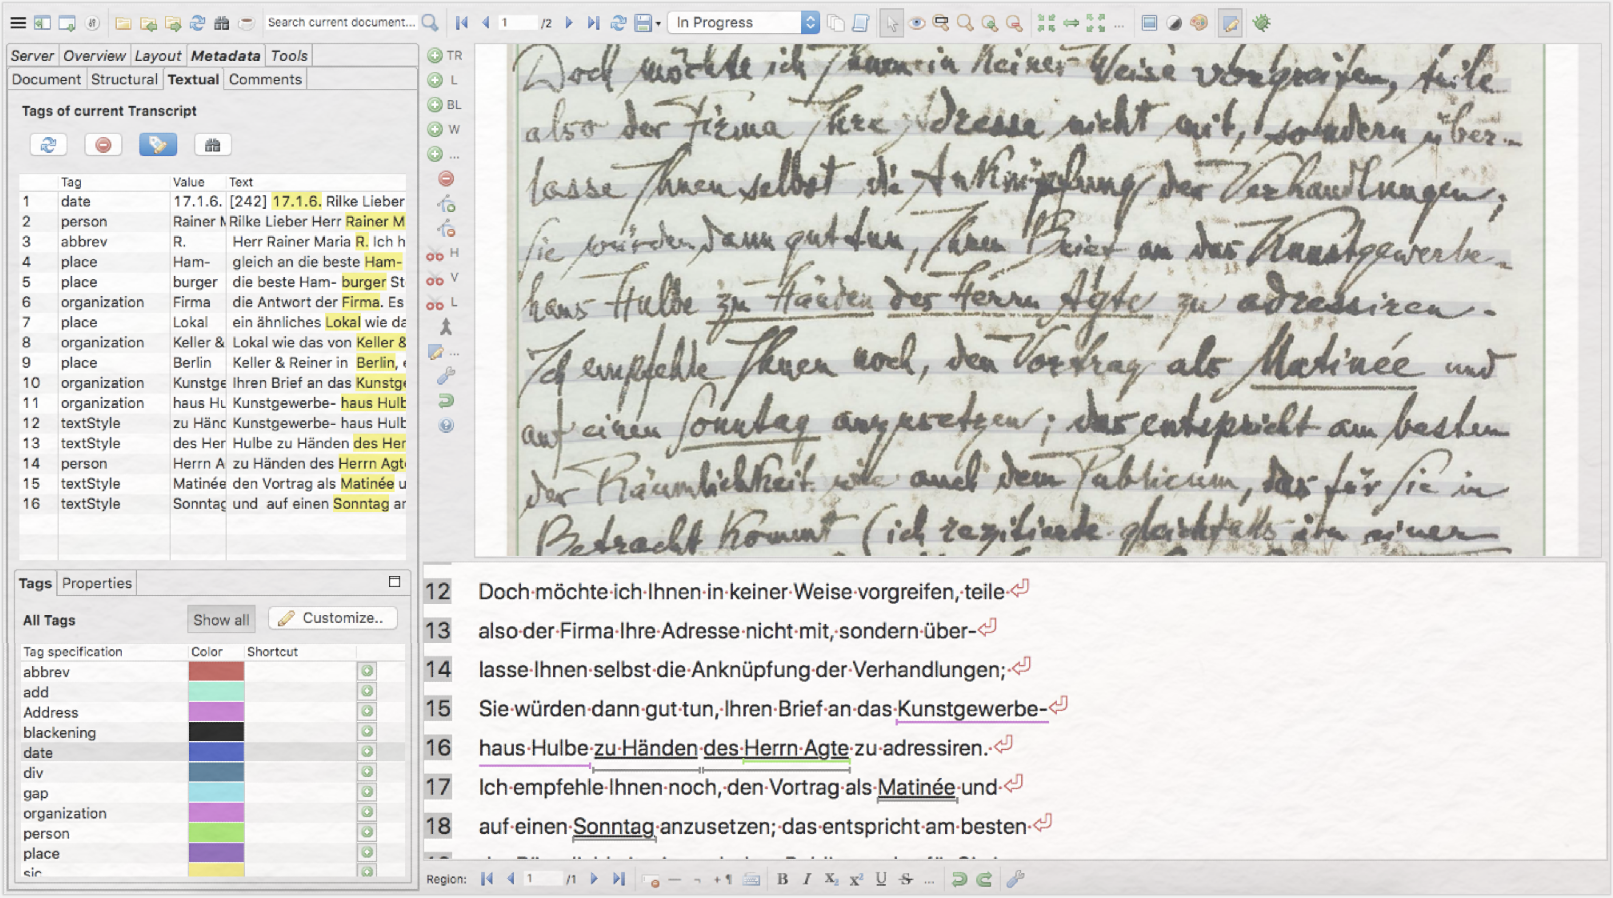 Search current document... 1 /2 In Progress ...
Server Overview Layout Metadata Tools
Document Structural Textual Comments
Tags of current Transcript
Tag Value Text
1 date 17.1.6. [242] 17.1.6. Rilke Lieber
2 person Rainer M Rilke Lieber Herr Rainer M
3 abbrev R. Herr Rainer Maria R. Ich h
4 place Ham- gleich an die beste Ham-
5 place burger die beste Ham- burger St
6 organization Firma die Antwort der Firma. Es
7 place Lokal ein ähnliches Lokal wie da
8 organization Keller & Lokal wie das von Keller &
9 place Berlin Keller & Reiner in Berlin, e
10 organization Kunstge Ihren Brief an das Kunstge
11 organization haus Hu Kunstgewerbe- haus Hulb
12 textStyle zu Händ Kunstgewerbe- haus Hulb
13 textStyle des Her Hulbe zu Händen des Her
14 person Herrn A zu Händen des Herrn Agte
15 textStyle Matinée den Vortrag als Matinée u
16 textStyle Sonntag und auf einen Sonntag an
Tags Properties
All Tags Show all Customize..
Tag specification Color Shortcut
abbrev
add
Address
blackening
date
div
gap
organization
person
place
sic
TR
L
BL
W
...
H
V
L
...
Doch möchte ich Ihnen in keiner Weise vorgreifen, teile
also der Firma Ihre Adresse nicht mit, sondern über-
lasse Ihnen selbst die Anknüpfung der Verhandlungen;
Sie würden dann gut tun, Ihren Brief an das Kunstgewerbe-
haus Hulbe zu Händen des Herrn Agte zu adressiren.
Ich empfehle Ihnen noch, den Vortrag als Matinée und
auf einen Sonntag anzusetzen; das entspricht am besten
der Räumlichkeit wie auch dem Publicum, das für Sie in
Betracht kommt (ich rezitirte gleichfalls in einer
12 Doch möchte ich Ihnen in keiner Weise vorgreifen, teile
13 also der Firma Ihre Adresse nicht mit, sondern über-
14 lasse Ihnen selbst die Anknüpfung der Verhandlungen;
15 Sie würden dann gut tun, Ihren Brief an das Kunstgewerbe-
16 haus Hulbe zu Händen des Herrn Agte zu adressiren.
17 Ich empfehle Ihnen noch, den Vortrag als Matinée und
18 auf einen Sonntag anzusetzen; das entspricht am besten
Region: 1 /1 B I X₂ X² U S ...